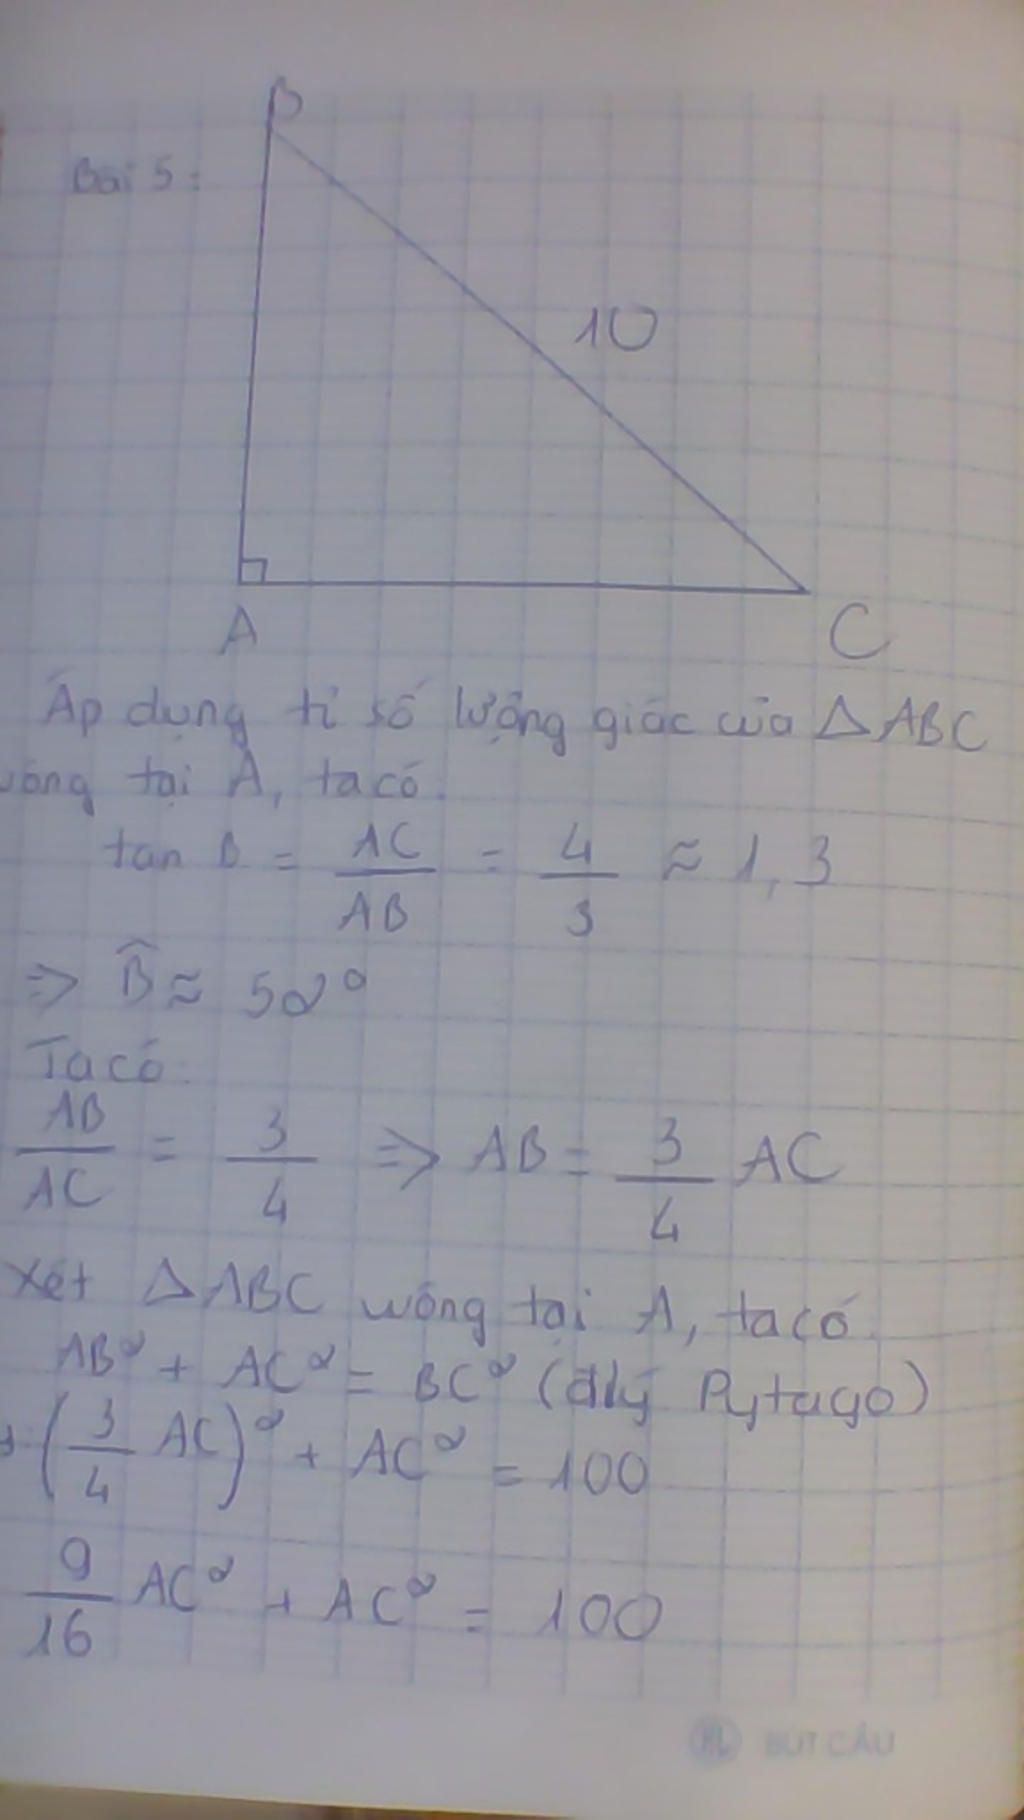 B
Bài 5:
10
A
C
Áp dụng tỉ số lượng giác của △ABC
vuông tại A, ta có:
tan B = AC/AB = 4/3 ≈ 1,3
=> B̂ ≈ 52°
Ta có:
AB/AC = 3/4 => AB = 3/4 AC
Xét △ABC vuông tại A, ta có:
AB² + AC² = BC² (đlý Pytago)
(3/4 AC)² + AC² = 100
9/16 AC² + AC² = 100
BÚT CÂU